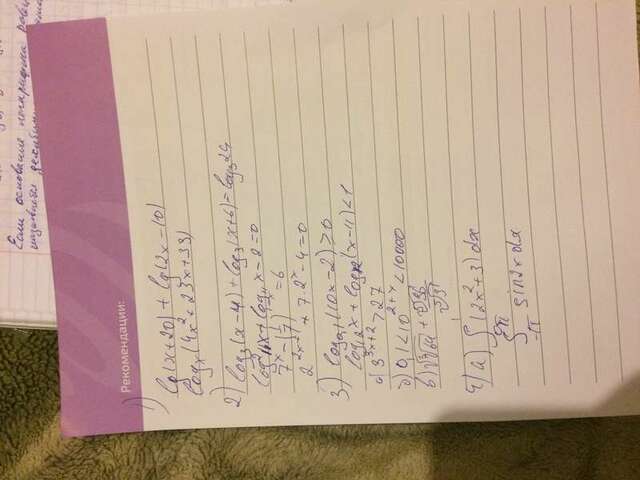 Если основание логарифма
называется
Рекомендации:
1)
lg(x+20) + lg(2x-10)
logₓ(4x²+23x+33)
2) log₃(x-4)+log₃(x+6)=log₃24
log₄²x+log₄x-2=0
7ˣ-(1/7)¹⁻ˣ=6
+7·2ˣ-4=0
3) log₀,₁(10x-2)≥0
log₁₂x+log₁₂(x-11)<1
а) 3³ˣ⁺²>27
б) 0,1<10²⁺ˣ<10000
в)
4) а) ∫(2x²+3)dx
∫ sin2xdx